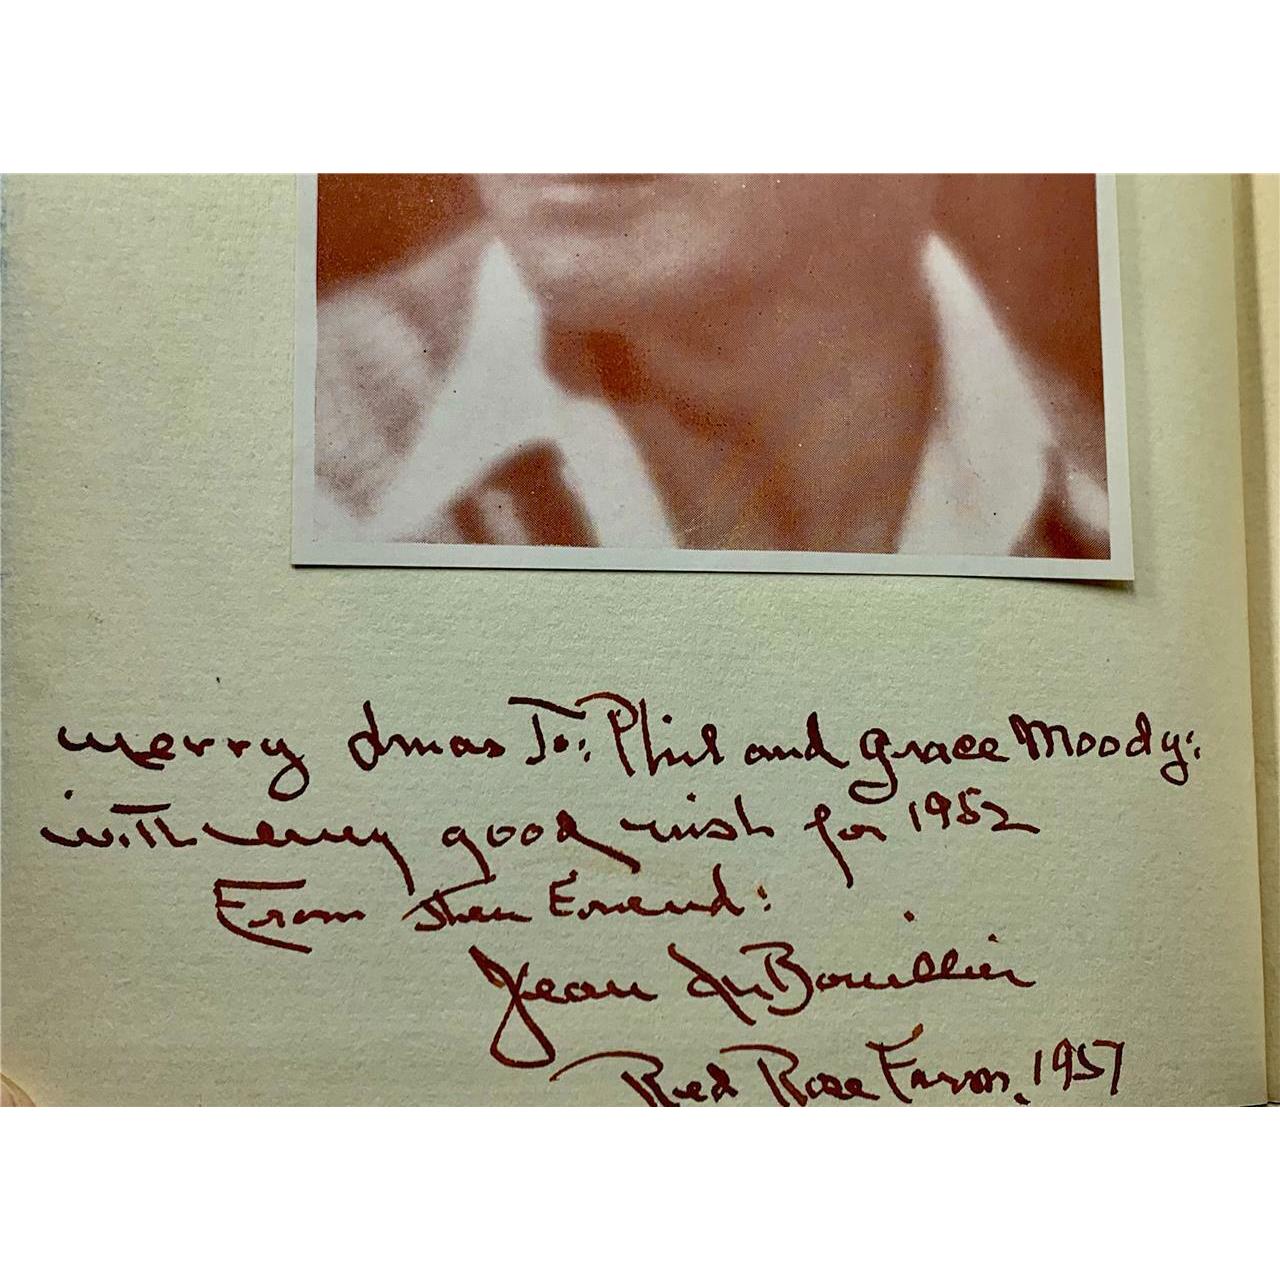 merry Xmas To: Phil and Grace Moody:
with every good wish for 1952
From their Friend:
Jean DuBouillier
Red Rose Farm, 1951